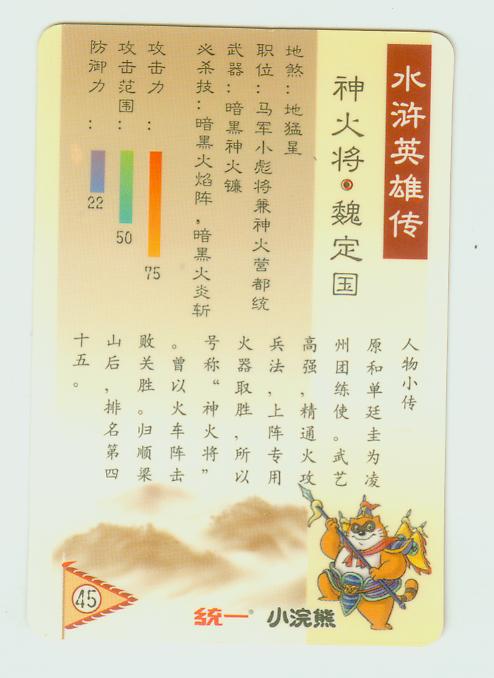 水浒英雄传
神火将·魏定国
地煞：地猛星
职位：马军小彪将兼神火营都统
武器：暗黑神火镰
必杀技：暗黑火焰阵，暗黑火炎斩
攻击力：
75
攻击范围：
50
防御力：
22
人物小传
原和单廷圭为凌
州团练使。武艺
高强，精通火攻
兵法，上阵专用
火器取胜，所以
号称“神火将”
。曾以火车阵击
败关胜。归顺梁
山后，排名第四
十五。
45
统一® 小浣熊